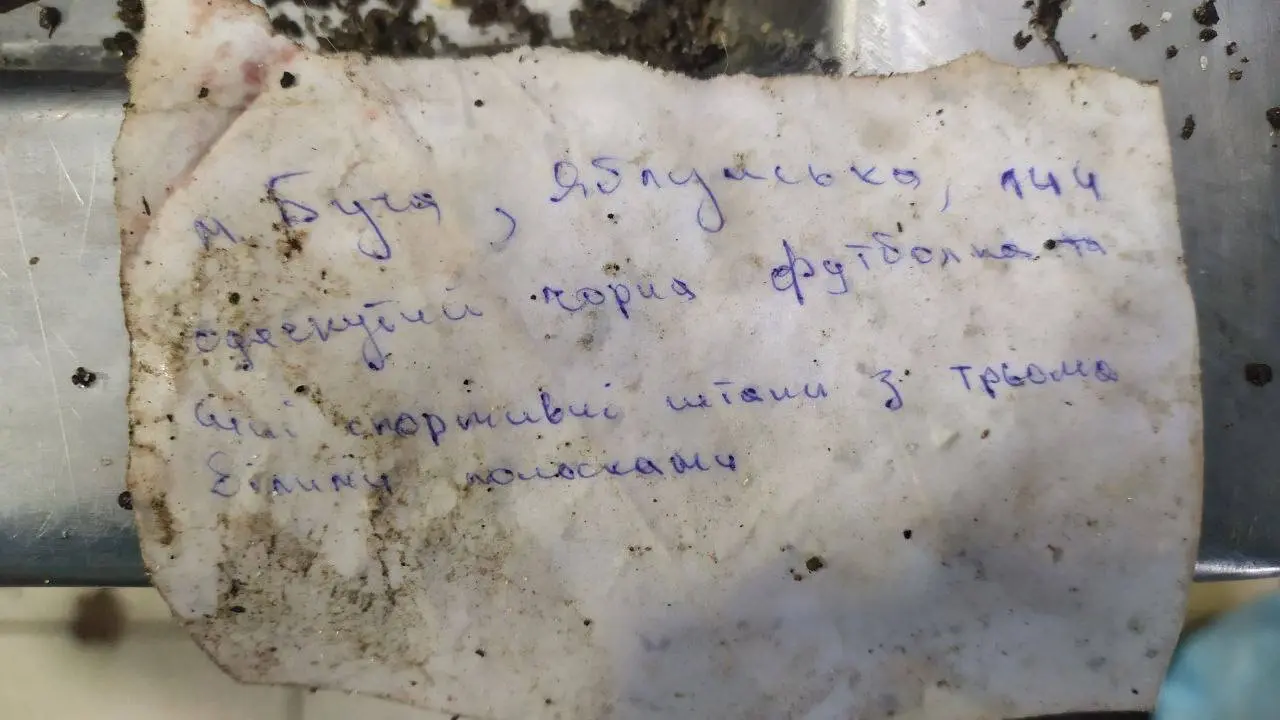 м. Буча, Яблунська, 144
одягнутий чорна футболка та
сині спортивні штани з трьома
білими полосками